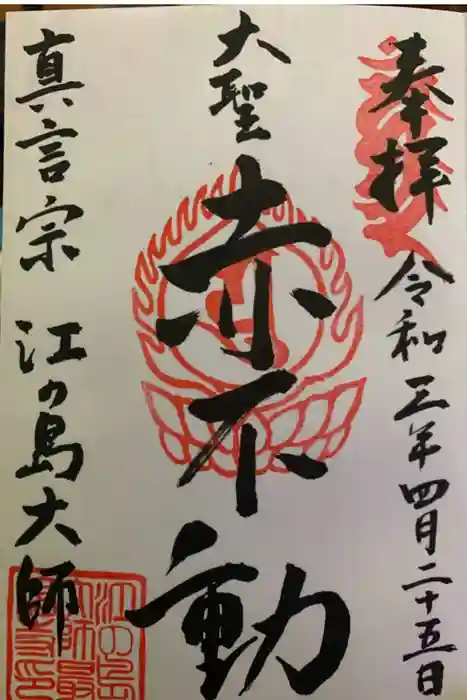 奉拝
令和三年四月二十五日
大聖
赤不動
真言宗 江の島大師